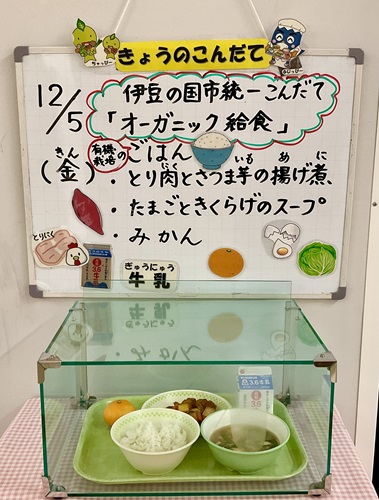 きょうのこんだて
12/5
(金)
きん
伊豆の国市統一こんだて
「オーガニック給食」
有機栽培のごはん
・とり肉とさつま芋の揚げ煮、
にく いも あ に
・たまごときくらげのスープ
・みかん
とりにく
ぎゅうにゅう
牛乳
3.6
3.6牛乳
3.6